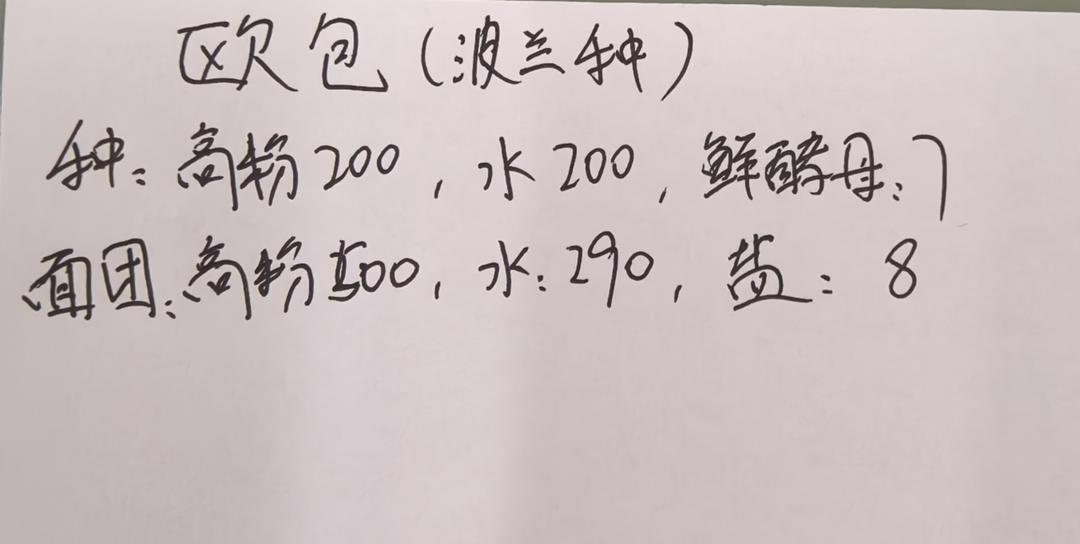 欧包(波兰种)
种:高粉200,水200,鲜酵母:7
面团:高粉500,水:290,盐:8